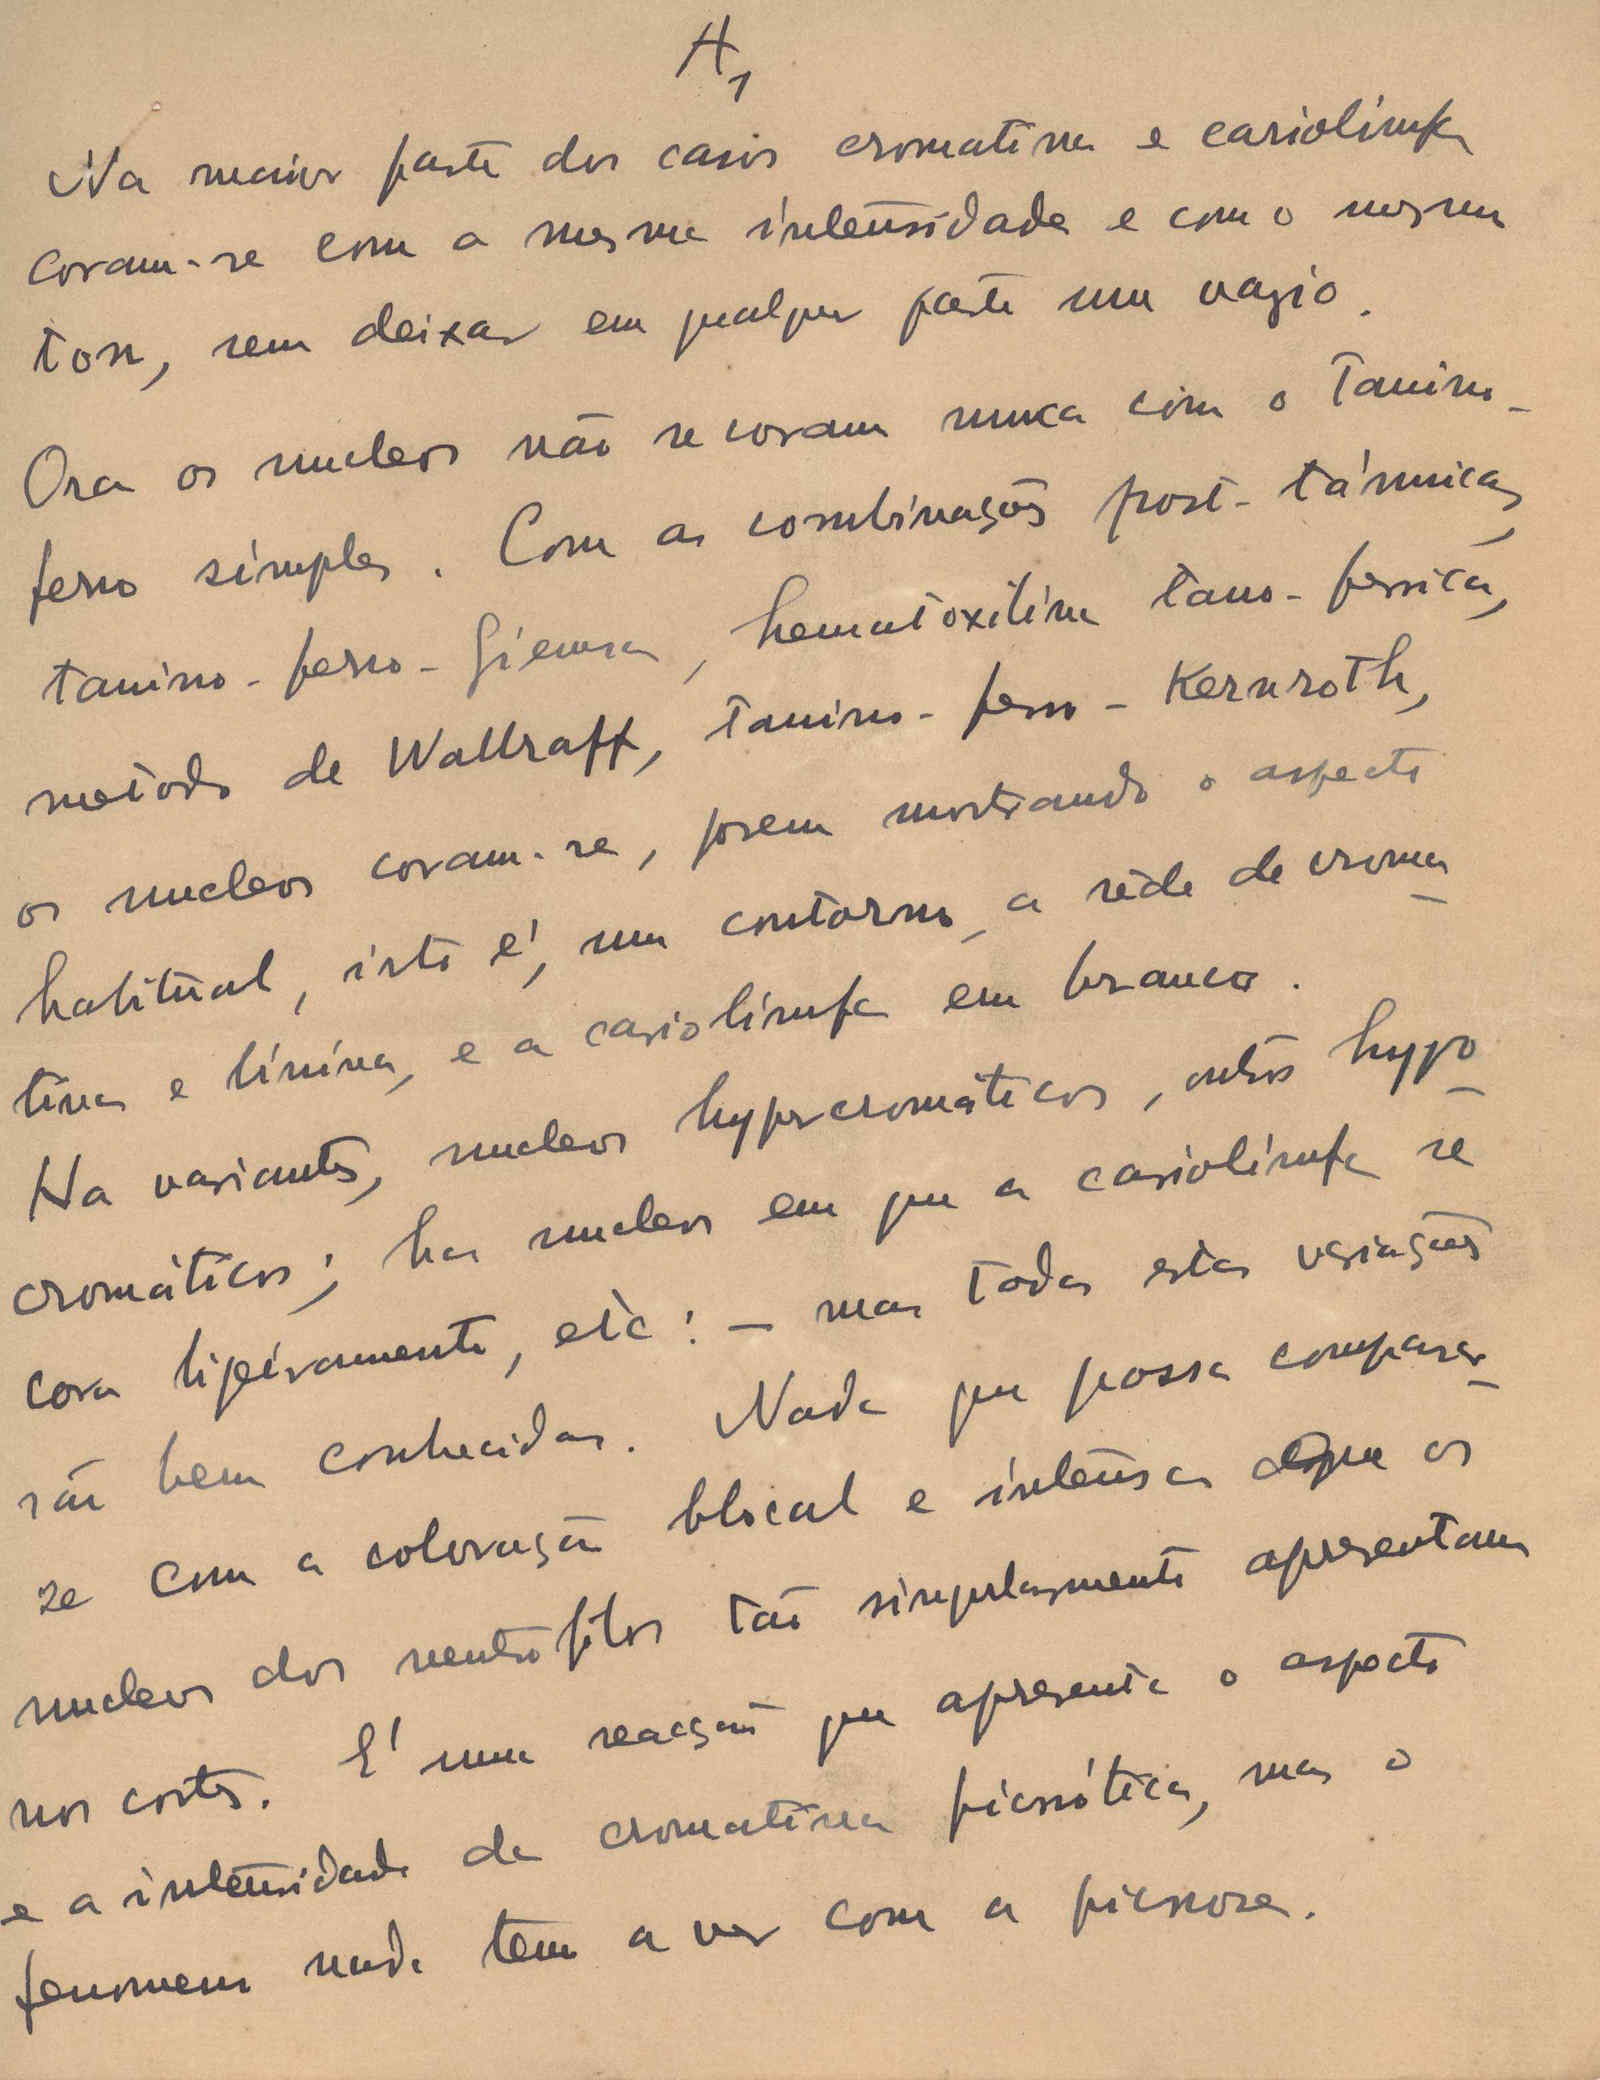 A1
Na maior parte dos casos cromatina e cariolinfa
coram-se com a mesma intensidade e com o mesmo
tom, sem deixar em qualquer parte um vazio.
Ora os nucleos não se coram nunca com o tanino-
ferro simples. Com as combinações post-tánnicas,
tanino-ferro-Giemsa, hematoxilina tano-ferrica,
metodo de Wallraff, tanino-ferro-Kernroth,
os nucleos coram-se, porem mostrando o aspecto
habitual, isto é, um contorno, a rêde de croma-
tina e linina, e a cariolinfa em branco.
Ha variantes, nucleos hypercromáticos, outros hypo-
cromáticos; ha nucleos em que a cariolinfa se
cora ligeiramente, etc: - mas todas estas variações
são bem conhecidas. Nada que possa comparar-
se com a coloração blocal e intensa que os
nucleos dos neutrofilos tão singularmente apresentam
nos cortes. E' uma reacção que apresenta o aspecto
e a intensidade da cromatina picnótica, mas o
fenomeno nada tem a ver com a picnose.